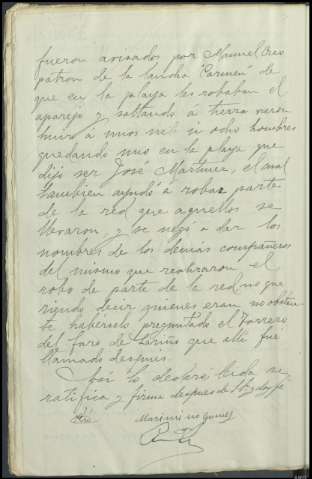 fueron avisados por Manuel Creo
patron de la lancha "Carmen" de
que en la playa les robaban el
aparejo y saltando á tierra vieron
huir á unos siete ú ocho hombres
quedando uno en la playa que
dijo ser José Martinez, el cual
tambien ayudó a robar parte
de la red que aquellos se
llevaron, y se negó a dar los
nombres de los demás compañeros
del mismo que realizaron el
robo de parte de la red no que
riendo decir quienes eran no obstan
te haberselo preguntado el Torrero
del faro de Lariño que alli fué
llamado despues.
Asi lo declara leida se
ratifica y firma despues de S. Sª doy fe
Maximino Gomez